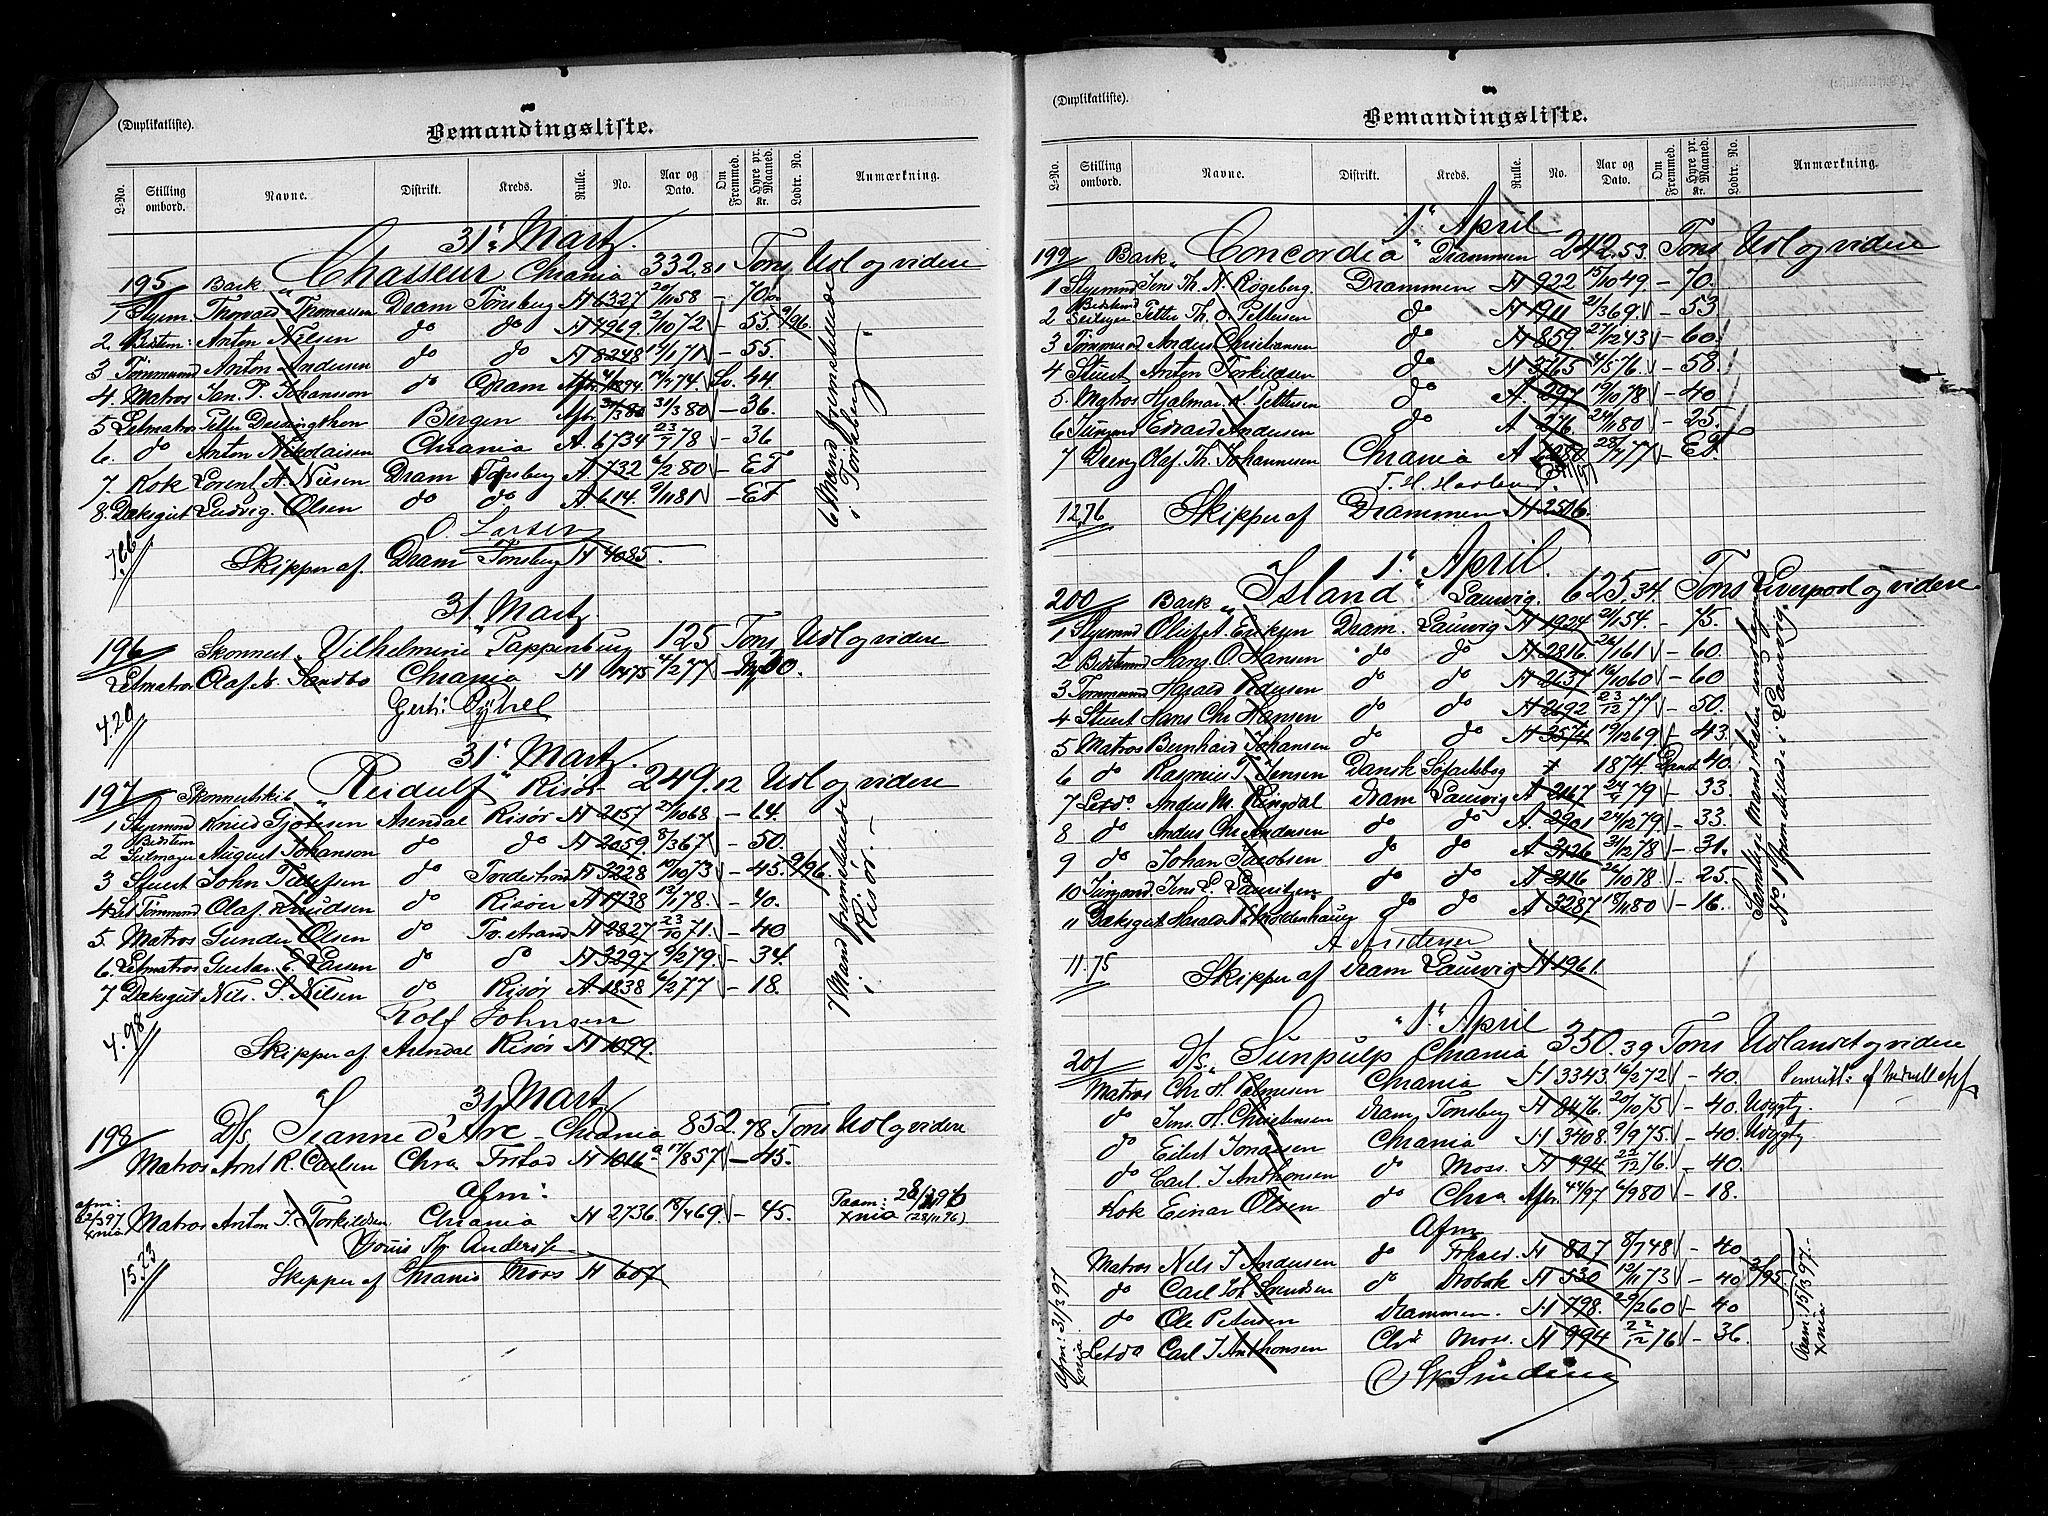 (Duplikatliste).
Bemandingsliste.
L-No. Stilling ombord. Navne. Distrikt. Kreds. Rulle. No. Aar og Dato. Om Fremmed. Hyre pr. Maaned. Kr. Lodtr. No. Anmærkning.
31' Martz.
195 Bark "Chasseur Chrania 332,81 Tons Udl og videre
1 Styrm. Thorvald Thomassen Dram Tonsberg H 6327 20/11 58 - 70
2. Bedstm: Anton Nilsen do do H 4969. 2/10 72 - 55. 9/96.
3 Tømmermd Anton Andersen do do H 8248 14/1 71 - 55.
4. Matros Jan. P. Johansson do Dram 17/7 74. Sv. 44
5 Letmatros Petter Bergen Afr. 31/3 80 - 36.
6. do Anton Nikolaisen Chrania A. 6734 23/7 78 - 36
7. Kok Lorent A. Nilsen Dram Tonsberg A 732 6/2 80 - EF
8. Dæksgut Ludvig. Olsen do do A 614. 9/11 81 - EF
6 Mand fremstillede i Tønsberg -
O. Larsen
7.66
Skipper af. Dram Tonsberg H 4085.
31. Martz
196 Skonnert Vilhelmine" Pappenburg 125 Tons Udl og videre
Letmatros Olaf M. Sandbo Chrania H 1475 4/2 77 - 30.
4.20
31' Martz.
197 Skonnertskib "Reidulf" Risør 249.12 Udl og videre
1 Styrmnd Knud Gjertsen Arendal Risør H 2157 27/10 68 - 64.
2 Bedstem Seilmager August Johanson do do H 2059. 8/3 67 - 50.
3 Stuert John Tallefsen do H 3228 10/10 73 - 45. 9/96.
4 Let Tømmmd Olaf. Knudsen do Risøer A 1738 13/1 78. - 40.
5. Matros Gunder Olsen do H 2827 23/10 71. - 40
6. Letmatros Gustav. E. Larsen do do H 3297 9/2 79. - 34.
7 Dæksgut Nils. S. Nilsen do Risør A 1838 6/2 77 - 18.
7 Mand fremstillede i Risør. -
Rolf Johnsen
4.98
Skipper af Arendal Risør H 1099.
31 Martz
198 D/s, "Jeanne d'Arc - Chrania 852.78 Tons Udl og videre
Matros Arnt R. Carlsen Chra Frstad H 1016 17/8 57 - 45.
Afm:
afm: 2/3 97. Xnia Matros Anton J. Torkildsen Chrania H 2736 18/4 69. - 45. Paam: Xnia (28/11 96)
Louis Th. Anderssen
15.23
Skipper af Chrania Moss H 607
(Duplikatliste).
Bemandingsliste.
L-No. Stilling ombord. Navne. Distrikt. Kreds. Rulle. No. Aar og Dato. Om Fremmed. Hyre pr. Maaned. Kr. Lodtr. No. Anmærkning.
"1" April
199 Bark "Concordia" Drammen 242.53 Tons Udl og videre
1 Styrmnd Jens Th. N. Rogeberg. Drammen H 922 15/10 49 - 70.
2 Bedstmd Seilmger Petter Th. O. Pettersen do H 1911 21/3 69 - 53
3 Tømmermd Anders Christiansen do H 859 27/12 43 - 60.
4 Stuert Anton Torkildsen do H 3765 4/5 76. - 58.
5. Matros Hjalmar. K. Pettersen do A. 297 19/10 78 - 40
6 Jungmd Edvard Andersen do A 376 24/11 80 - 25.
7 Dreng Olaf. Th. Johannesen Chrania A 28/7 77 - EF.
12.76
Skipper af Drammen H 2516.
1" April.
200 Bark "Island" Laurvig. 625.34 Tons Liverpool og videre
1 Styrmnd Oluf A. Eriksen Dram. Laurvig H 1924 21/1 54. - 75.
2 Bedstmnd Hans. O. Hansen do do H 2816. 26/1 61 - 60.
3 Tømmermd Harald Pedersen do do H 2637 16/10 60 - 60
4 Stuert Hans Chr. Hansen do do H 2692 23/12 77 - 50.
5 Matros Bernhard Johansen do do H 3574 19/12 69 - 43.
6 do Rasmus T. Jensen Dansk Søfartsbog 1874 Dansk 40.
7 Letdo Anders M. Ringdal Dram Laurvig A 2167 24/9 79 - 33
8 do Anders Chr Andersen do do A. 2901 24/12 79 - 33.
9 do Johan Jacobsen do do A 3126 31/12 78 - 31.
10 Jungmnd. Jens L. Lauritzen do do A 3116 26/10 78 - 25.
11 Dæksgut Harald N. Moldenhauer do do A 3287 18/11 80 - 16.
Samtlige Mand undtagen No. 1 fremstilled i Laurvig.
A Andersen
11.75
Skipper af Dram Laurvig H 1961.
"1" April
201 D/s. "Sunpulp Chrania 350.39 Tons Udlandet og videre
Matros Chr. H. Chrania H 3343 16/2 72 - 40.
do Jens. H. Christensen Dram Tonsberg H 8476. 20/10 75 - 40. Udygtg.
do Eilert Jonassen Chrania H 3408. 9/9 75. - 40. Udygtg
do Carl J. Anthonsen do Moss. H 994 22/12 76. - 40.
Kok Einar Olsen do Chra Afr. 44/97 6/9 80 - 18.
Afm
Matros Nils J Andersen do Frhald. H 807 8/7 48 - 40
do Carl Joh Svendsen do Drobak H 530 12/11 73 - 40 3/95.
do Ole Petersen Drammen. H 798. 29/2 60 - 40
Letdo Carl J Anthonsen Chr Moss. H 994 22/12 76 - 36.
Afm: 31/3 97 Xnia
Anm: 15/3 97. - Xnia
Sinding